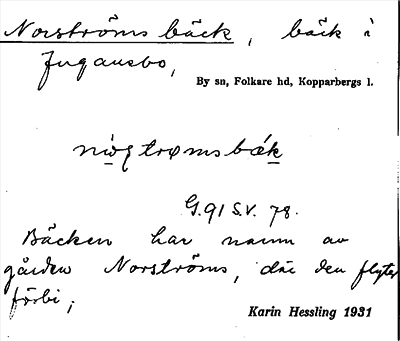 Norströms bäck, bäck i
Jugansbo,
By sn, Folkare hd, Kopparbergs l.
G. 91 S.V. 78.
Bäcken har namn av
gården Norströms, där den flyter
förbi;
Karin Hessling 1931